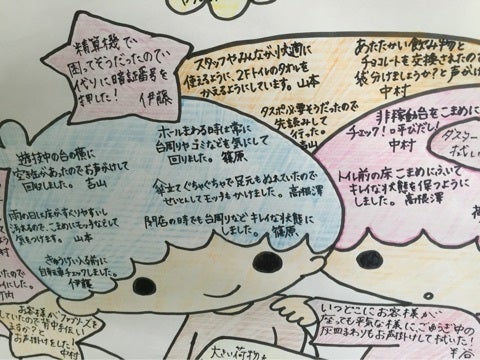 精算機で
困ってそうだったので
代りに暗証番号を
押した！ 伊藤
スタッフやみんなが快適に
使えるように、2Fトイレのタオルを
かえるようにしています。山本
あたたかい飲み物と
チョコレートを交換されたので
袋分けましょうか？と声がけ
中村
タスポ必要そうだったので
先読みして
行った。
吉山
非稼動台をこまめに
チェック！呼びだし！
中村
ホールまわる時は常に
台周りやゴミなどを気にして
回りました。篠原
遊技中の台の横に
空き缶があったのでお声がけして
回収しました。吉山
傘立てぐちゃぐちゃで足元もぬれていたので
せいとんしてモップもかけました。高根澤
トイレ前の床こまめにふいて
キレイな状態を保つように
しました。高根澤
雨の日は床がすべりやすいし
汚れるので、こまめにモップなどして
気をつけます。山本
閉店の時でも台周りなどキレイな状態に
しました。篠原
きゅうけい入る前に
自転車チェックしました。
伊藤
お客様がファブリーズを
していたので背中手伝い
ますか？と
お声掛けをした！
中村
いつどこにお客様が
座っても平気な様に、ごゆうぎ中の
灰皿まわりもお声掛けして拭いた！
大きい荷物も